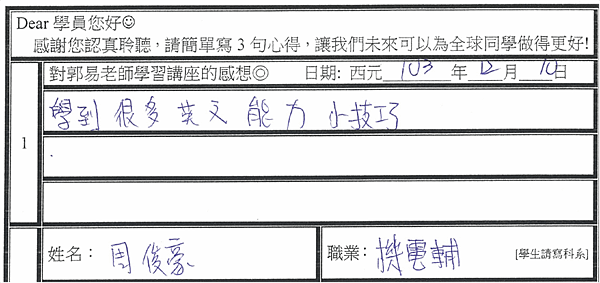 Dear 學員您好☺
感謝您認真聆聽，請簡單寫 3 句心得，讓我們未來可以為全球同學做得更好!
對郭易老師學習講座的感想◎ 日期: 西元 103 年 12 月 10 日
1
學到很多英文能力小技巧
姓名： 周俊豪 職業： 機電輔 [學生請寫科系]